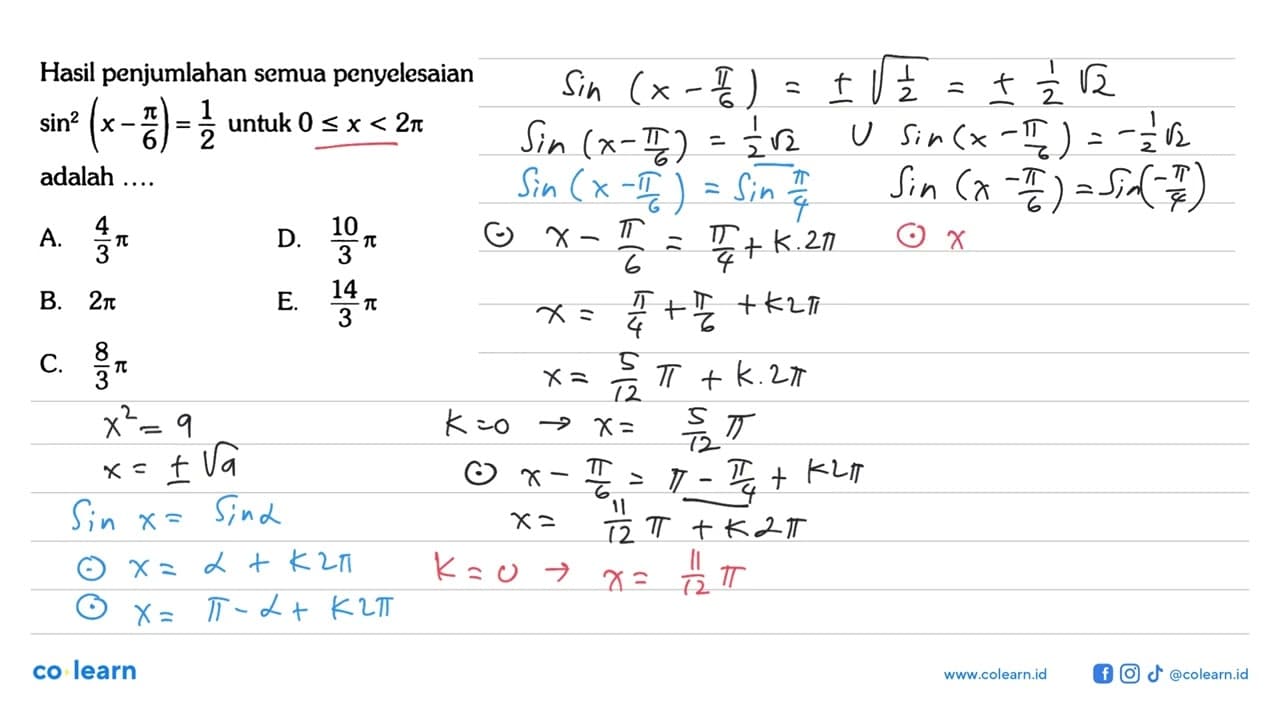 Hasil penjumlahan semua penyelesaian
sin² (x − π/6) = 1/2 untuk 0 ≤ x < 2π
adalah ....
A. 4/3 π
D. 10/3 π
B. 2π
E. 14/3 π
C. 8/3 π
Sin (x − π/6) = ± √(1/2) = ± 1/2 √2
Sin (x − π/6) = 1/2 √2 ∪ Sin (x − π/6) = −1/2 √2
Sin (x − π/6) = Sin π/4
Sin (x − π/6) = Sin(−π/4)
⊙ x − π/6 = π/4 + k.2π
⊙ x
x = π/4 + π/6 + k2π
x = 5/12 π + k.2π
k=0 → x = 5/12 π
⊙ x − π/6 = π − π/4 + k2π
x = 11/12 π + k2π
k=0 → x = 11/12 π
x² = 9
x = ± √9
Sin x = Sin α
⊙ x = α + k2π
⊙ x = π − α + k2π
co learn
www.colearn.id
@colearn.id